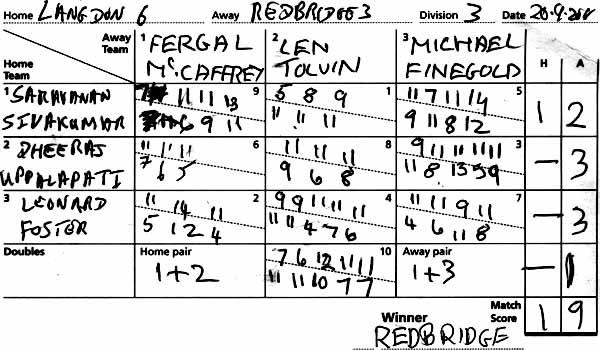 Home LANGDON 6 Away REDBRIDGE 3 Division 3 Date
Away Team 1 FERGAL McCAFFREY 2 LEN TOLVIN 3 MICHAEL FINEGOLD H A
Home Team
1 SARAVANAN 11 11 13 9 5 8 9 1 11 7 11 14 5
SIVAKUMAR 6 9 11 11 11 11 9 11 8 12 1 2
2 DHEERAJ 11 11 11 6 11 11 11 8 9 11 11 11 11 3
UPPALAPATI 7 6 5 9 6 8 11 8 13 5 9 – 3
3 LEONARD 11 14 11 2 9 9 11 11 11 4 11 11 9 11 7
FOSTER 5 12 4 11 11 4 7 6 4 6 11 8 – 3
Doubles Home pair 7 6 12 11 11 10 Away pair
1+2 11 11 10 7 7 1+3 – 1
Winner Match Score 1 9
REDBRIDGE